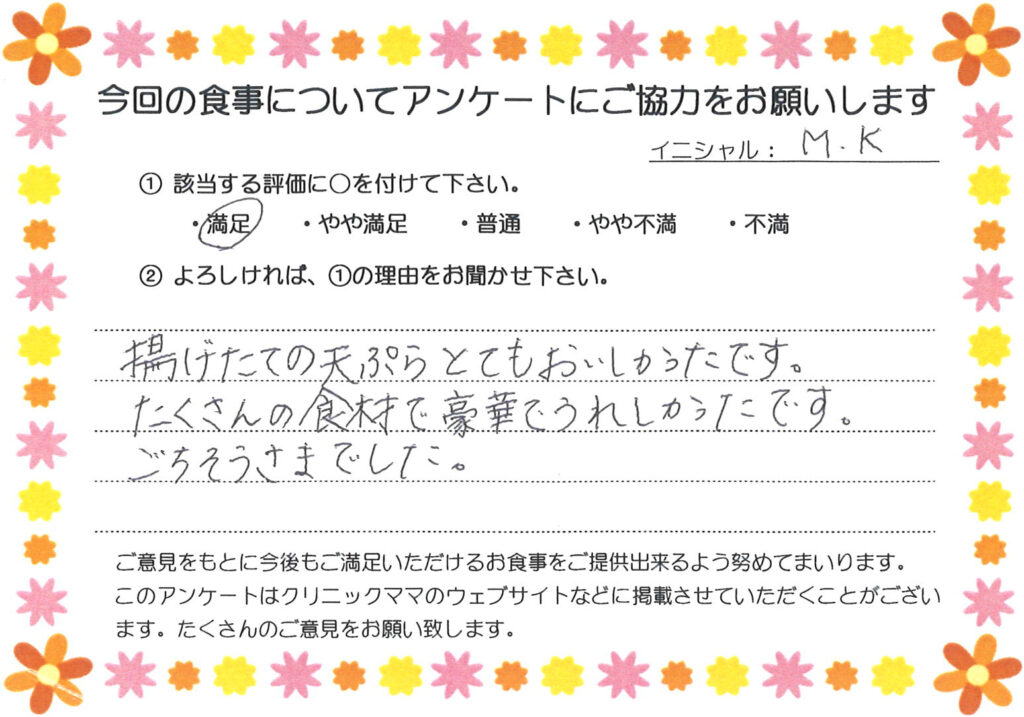 今回の食事についてアンケートにご協力をお願いします
イニシャル： M.K
① 該当する評価に○を付けて下さい。
・満足 ・やや満足 ・普通 ・やや不満 ・不満
② よろしければ、①の理由をお聞かせ下さい。
揚げたての天ぷらとてもおいしかったです。
たくさんの食材で豪華でうれしかったです。
ごちそうさまでした。
ご意見をもとに今後もご満足いただけるお食事をご提供出来るよう努めてまいります。
このアンケートはクリニックママのウェブサイトなどに掲載させていただくことがござい
ます。たくさんのご意見をお願い致します。